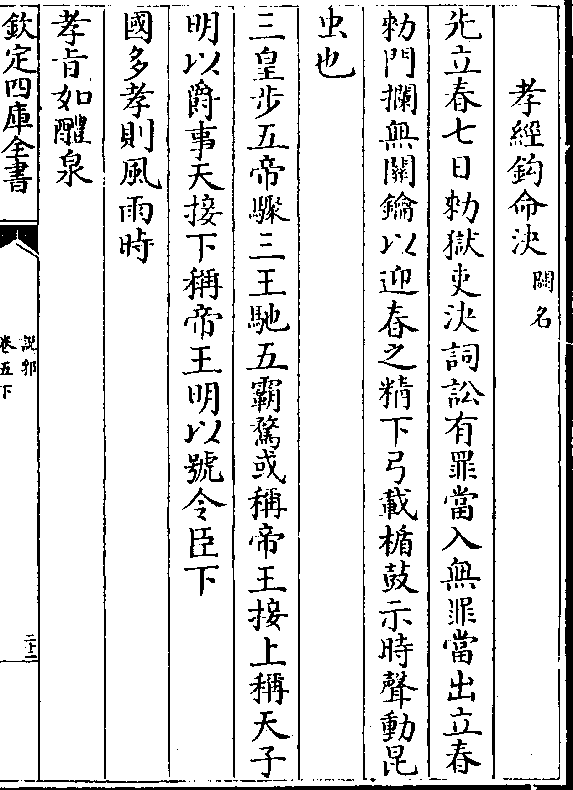 孝經鈎命決 闕名
先立春七日勅獄吏決詞訟有罪當入無罪當出立春
勅門攔無關鑰以迎春之精下弓載楯鼓示時聲動昆
虫也
三皇步五帝驟三王馳五霸騖或稱帝王接上稱天子
明以爵事天接下稱帝王明以號令臣下
國多孝則風雨時
孝旨如醴泉
欽定四庫全書
說郛
卷五下
二十二